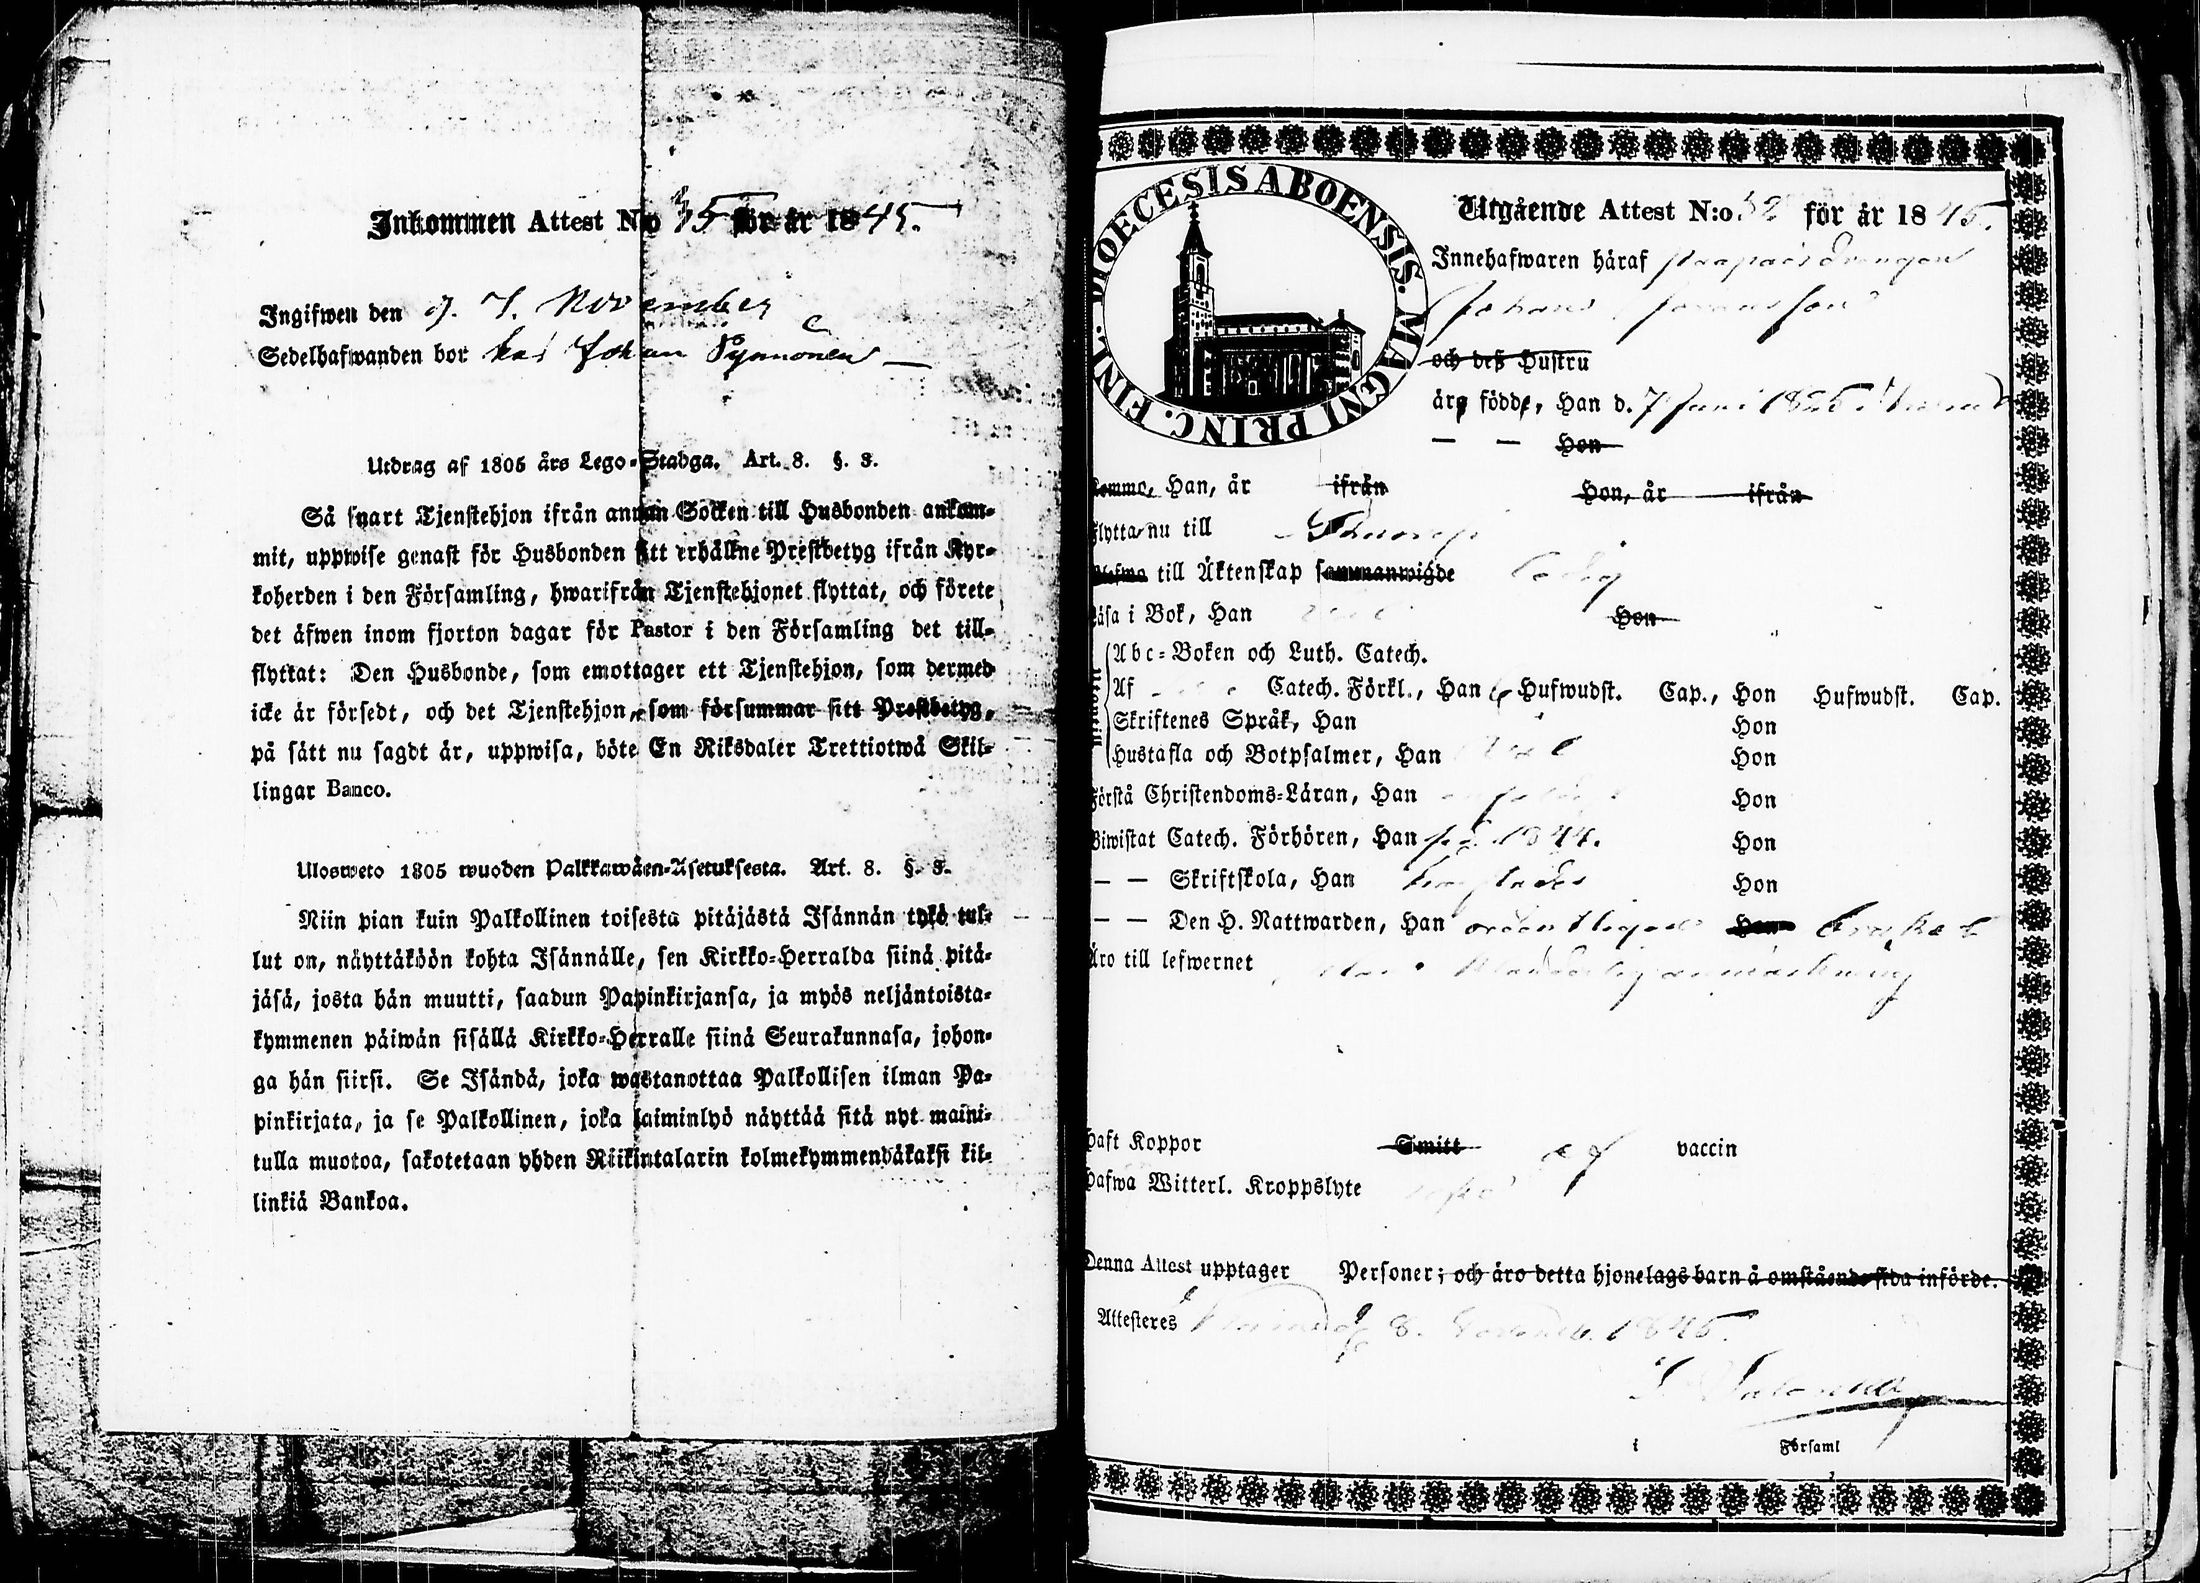 Inkommen Attest N:o 35 för år 1845.
Ingifwen den d. 7. November
Sedelhafwanden bor hos Johan Pynnönen
Utdrag af 1805 års Lego-Stadga. Art. 8. §. 3.
Så snart Tjenstehjon ifrån annan Socken till Husbonden ankom-
mit, uppwise genast för Husbonden sitt erhållne Prestbetyg ifrån Kyr-
koherden i den Församling, hwarifrån Tjenstehjonet flyttat, och förete
det äfwen inom fjorton dagar för Pastor i den Församling det till-
flyttat: Den Husbonde, som emottager ett Tjenstehjon, som dermed
icke är försedt, och det Tjenstehjon, som försummar sitt Prestbetyg,
på sätt nu sagdt är, uppwisa, böte En Riksdaler Trettiotwå Skil-
lingar Banco.
Ulosweto 1805 wuoden Palkkawäen-Asetuksesta. Art. 8. §. 3.
Niin pian kuin Palkollinen toisesta pitäjästä Isännän tykö tul-
lut on, näyttäköön kohta Isännälle, sen Kirkko-Herralda siinä pitä-
jäsä, josta hän muutti, saadun Papinkirjansa, ja myös neljäntoista-
kymmenen päiwän sisällä Kirkko-Herralle siinä Seurakunnasa, johon-
ga hän siirsi. Se Isändä, joka wastanottaa Palkollisen ilman Pa-
pinkirjata, ja se Palkollinen, joka laiminlyö näyttää sitä nyt maini-
tulla muotoa, sakotetaan yhden Riikintalarin kolmekymmendäkaksi kil-
linkiä Bankoa.
DIOECESIS ABOENSIS. MAGNI PRINC. FINL.
Utgående Attest N:o 52 för år 1845.
Innehafwaren häraf
Johan
och dess Hustru
äro födde, Han d. 7 Juni
— — Hon
Komme, Han, år ifrån Hon, år ifrån
Flytta nu till
till Äktenskap sammanwigde ledig
Läsa i Bok, Han Hon
Utontill
Abc-Boken och Luth. Catech.
Af Catech. Förkl., Han 6 Hufwudst. Cap., Hon Hufwudst. Cap.
Skriftenes Språk, Han Hon
Hustafla och Botpsalmer, Han Hon
Förstå Christendoms-Läran, Han Hon
Biwistat Catech. Förhören, Han 1844. Hon
— — Skriftskola, Han Hon
— — Den H. Nattwarden, Han ordentligen Hon
Äro till lefwernet anmärkning
Haft Koppor Smitt af vaccin
Hafwa Witterl. Kroppslyte
Denna Attest upptager Personer; och äro detta hjonelags barn å omstående sida införde.
Attesteres 8. 1845.
i Församl